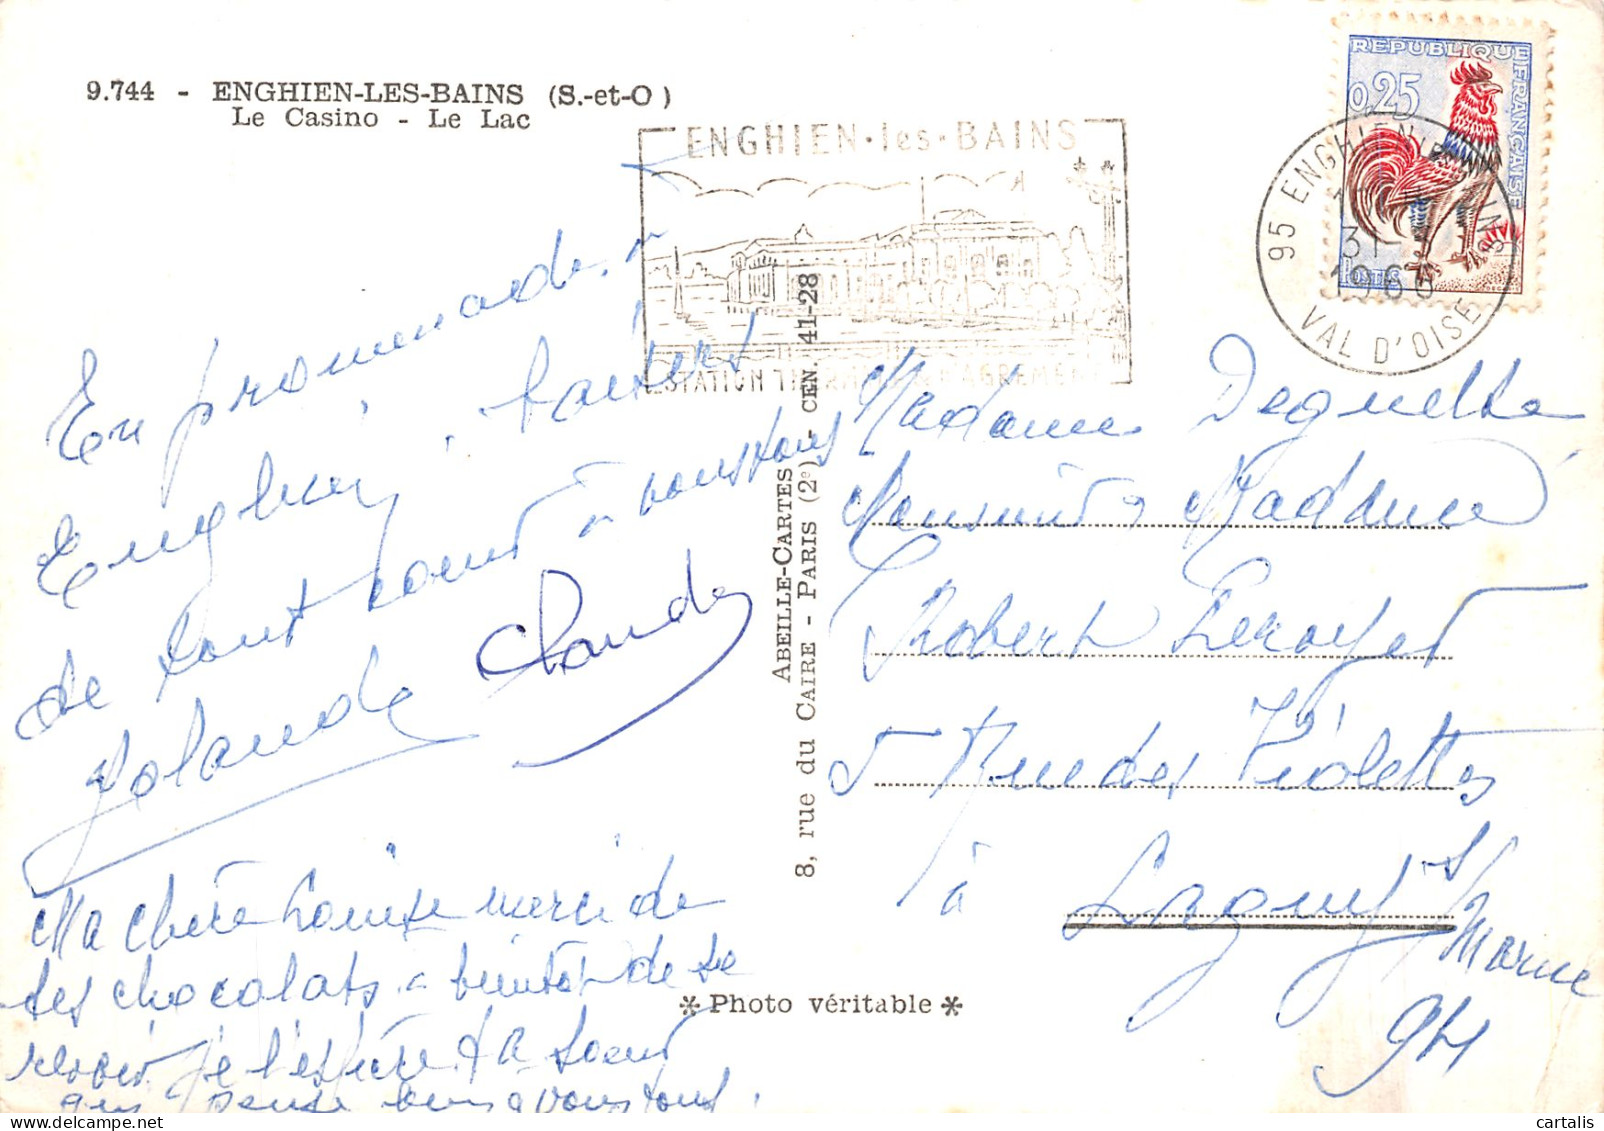 9.744 - ENGHIEN-LES-BAINS (S.-et-O)
Le Casino - Le Lac
ENGHIEN·les·BAINS
STATION THERMALE & D'AGREMENT
REPUBLIQUE FRANÇAISE
0,25
POSTES
95 ENGHIEN LES BAINS
31
VAL D'OISE
En promenade à
Enghien, baisers
de tout cœur à vous tous
Yolande Claude
Ma chère Louise merci de
tes chocolats à bientôt de te
revoir je l'espère ta soeur
qui pense bien à vous tous.
ABEILLE-CARTES
8, rue du CAIRE - PARIS (2e) - CEN. 41-28
Madame
Monsieur & Madame
Robert Leroyer
5 Rue des Violettes
à Lagny s/Marne
94
* Photo véritable *